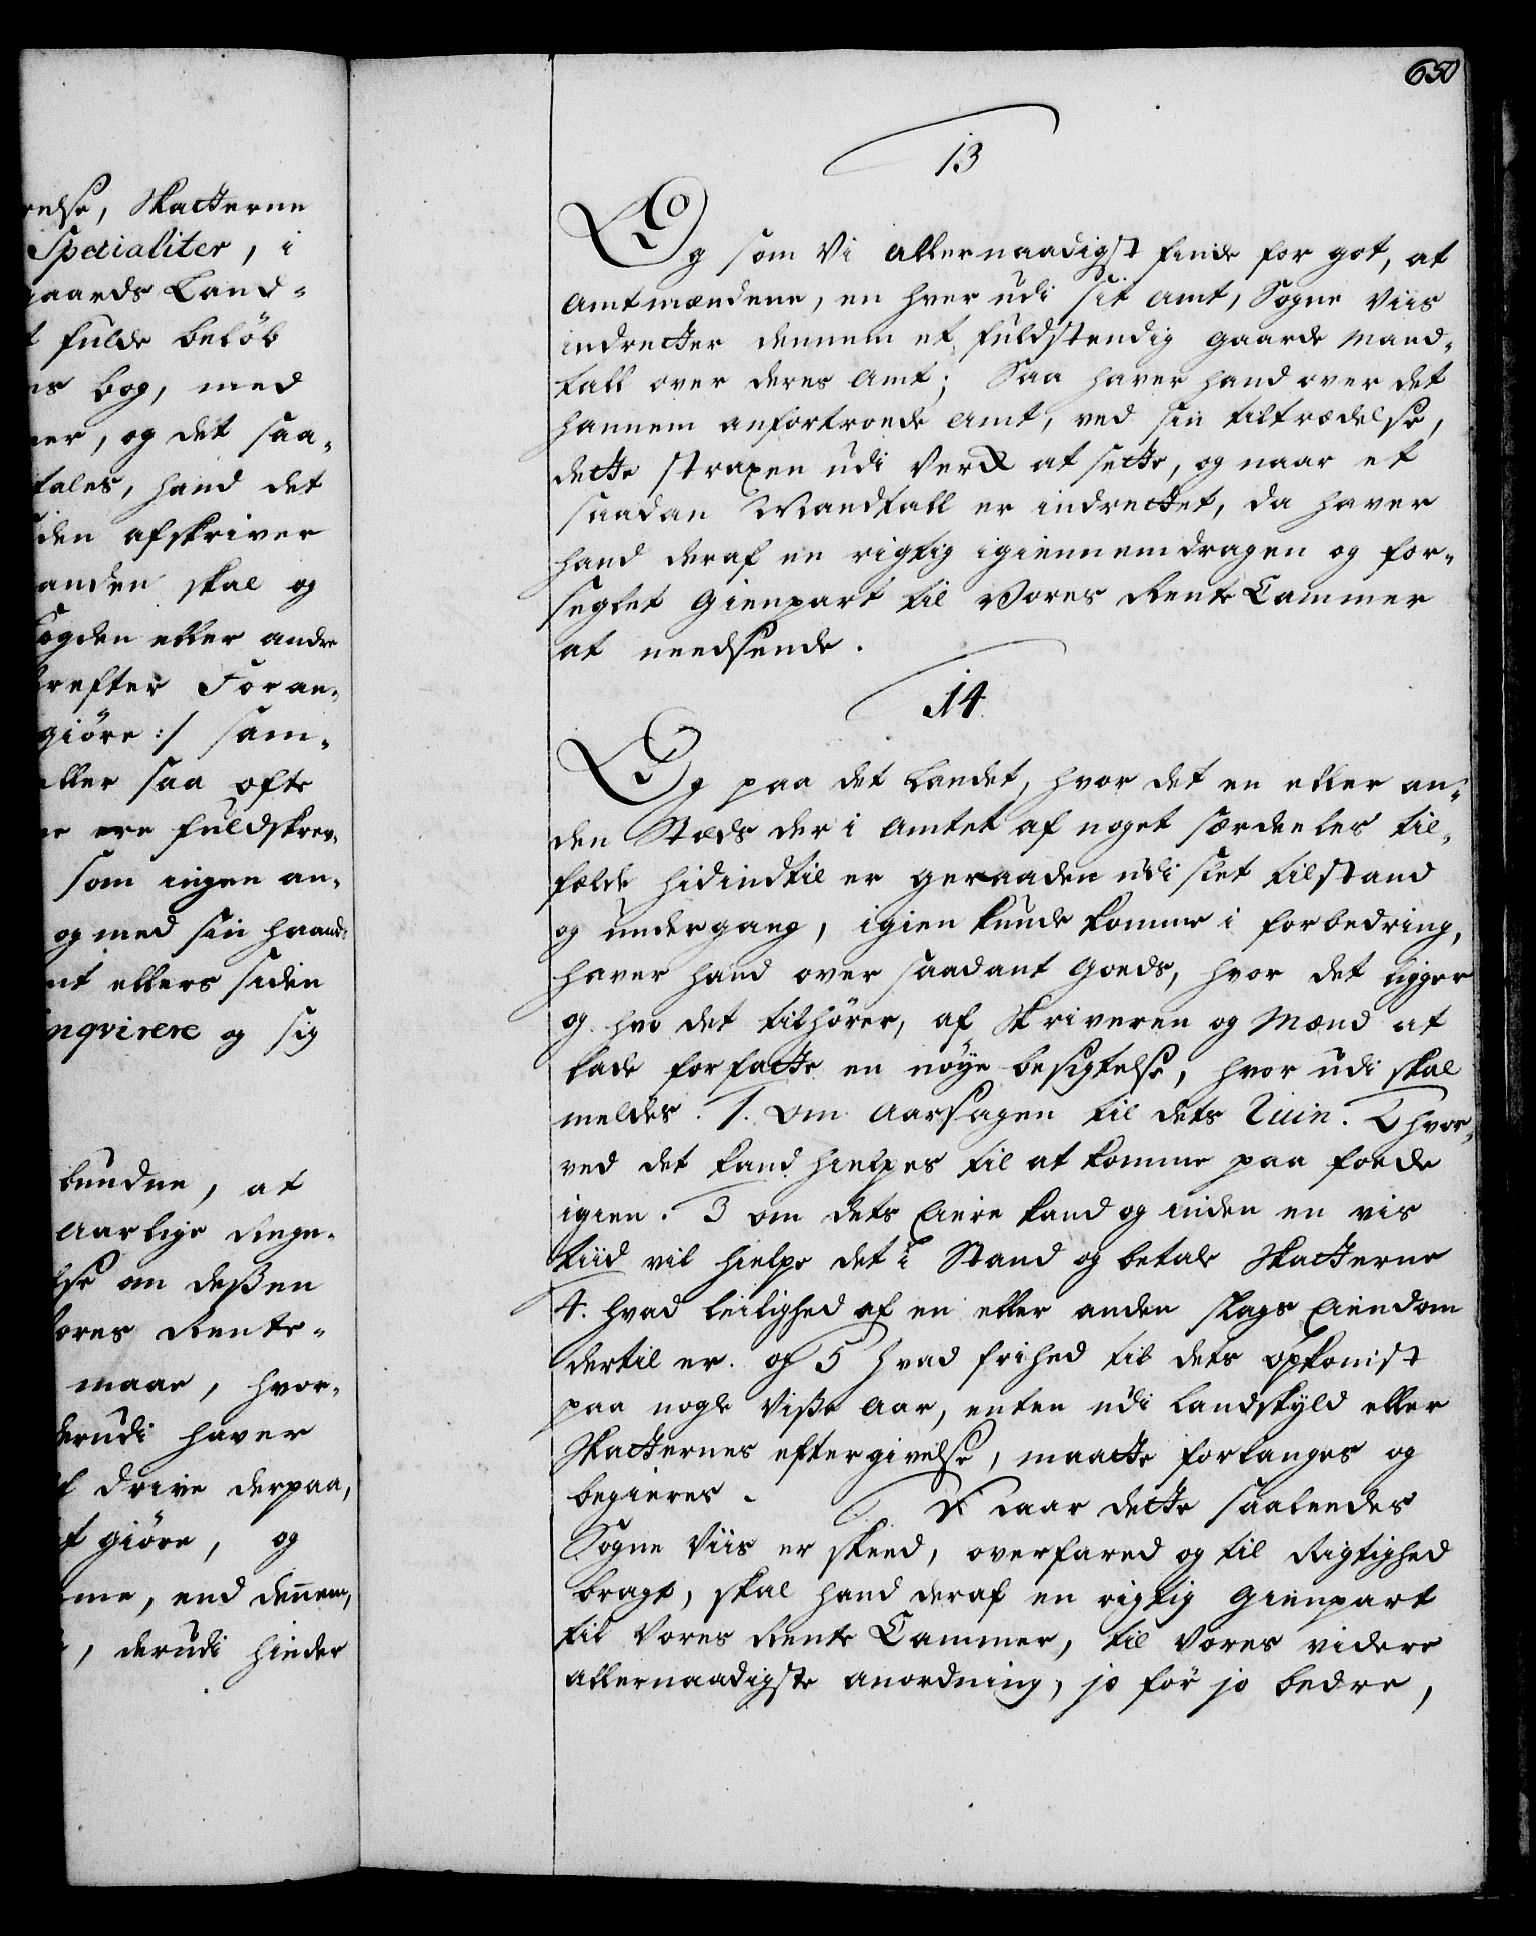 relse, Skatterne
Specialiter, i
gaards Land-
t fulde beløb
ns bog, med
ner, og det saa-
tales, hand det
iden afskriver
anden skal og
Fogden eller andre
erefter Foran-
giöre :/ sam-
eller saa ofte
er ere fuldskrev-
som ingen an-
og med sin haand-
nt ellers siden
inqvirere og sig
bundne, at
Aarlige Regn-
lse om deßen
Vores Rente-
maar, hvor-
derudi haver
f drive derpaa,
t giöre, og
me, end dennem,
, derudi hinder
650
13
Og som Vi Allernaadigst finde for got, at
Amtmændene, en hver udi sit Amt, Sogne Viis
indretter dennem et fuldstendig Gaarde Mand-
tall over deres Amt; Saa haver hand over det
hannem anfortroede Amt, ved sin tiltrædelse,
dette straxen udi Verck at sette, og naar et
saadan Mandtall er indrettet, da haver
hand deraf en rigtig igiennemdragen og for-
seglet Gienpart til Vores Rente Cammer
at needsende.
14.
Og paa det Landet, hvor det en eller an-
den Stæds der i Amtet af noget særdeeles til-
fælde hidindtil er geraaden udi slet tilstand
og undergang, igien kunde komme i forbedring,
haver hand over saadant Goeds, hvor det ligger
og hvo det tilhører, af Skriveren og Mænd at
lade forfatte en nøye besigtelse, hvor udi skal
meldes. 1. Om Aarsagen til dets Ruin. 2 hvor-
ved det kand hielpes til at komme paa foede
igien. 3 om dets Eiere kand og inden en vis
tiid vil hielpe det i Stand og betale Skatterne
4. hvad leilighed af en eller anden slags Eiendom
dertil er. og 5 hvad frihed til dets opkomst
paa nogle Viße Aar, enten udi Landskyld eller
Skatternes eftergivelse, maatte forlanges og
begieres. Naar dette saaleedes
Sogne Viis er skeed, overfared og til Rigtighed
bragt, skal hand deraf en rigtig Gienpart
til Vores Rente Cammer, til Vores videre
allernaadigste Anordning, jo för jo bedre,